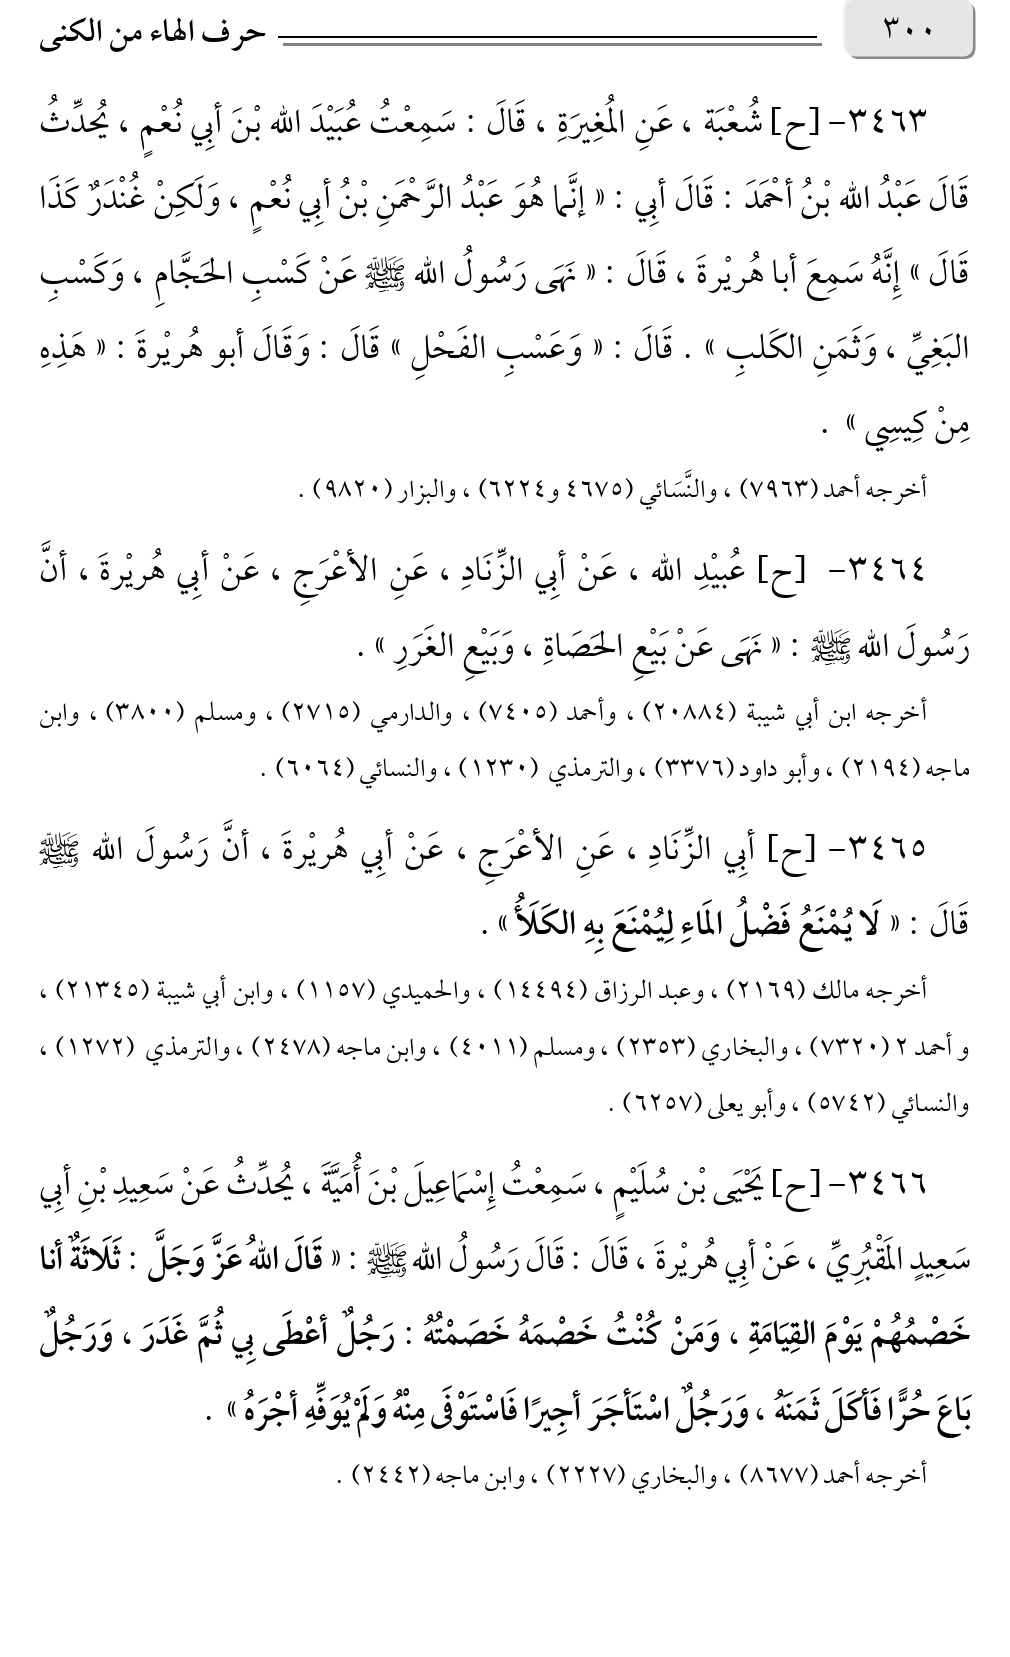 ٣٠٠ حرف الهاء من الكنى
٣٤٦٣- [ح] شُعْبَة ، عَنِ المُغِيرَةِ ، قَالَ : سَمِعْتُ عُبَيْدَ الله بْنَ أبِي نُعْمٍ ، يُحدِّثُ
قَالَ عَبْدُ الله بْنُ أحْمَدَ : قَالَ أبي : « إنَّما هُوَ عَبْدُ الرَّحْمَنِ بْنُ أبِي نُعْمٍ ، وَلَكِنْ غُنْدَرٌ كَذَا
قَالَ » إِنَّهُ سَمِعَ أبا هُريْرةَ ، قَالَ : « نَهَى رَسُولُ الله ﷺ عَنْ كَسْبِ الحَجَّامِ ، وَكَسْبِ
البَغِيِّ ، وَثَمَنِ الكَلبِ » . قَالَ : « وَعَسْبِ الفَحْلِ » قَالَ : وَقَالَ أبو هُريْرةَ : « هَذِهِ
مِنْ كِيسِي » .
أخرجه أحمد (٧٩٦٣) ، والنَّسَائي (٤٦٧٥ و٦٢٢٤) ، والبزار (٩٨٢٠) .
٣٤٦٤- [ح] عُبيْدِ الله ، عَنْ أبِي الزِّنَادِ ، عَنِ الأعْرَجِ ، عَنْ أبِي هُريْرةَ ، أنَّ
رَسُولَ الله ﷺ : « نَهَى عَنْ بَيْعِ الحَصَاةِ ، وَبَيْعِ الغَرَرِ » .
أخرجه ابن أبي شيبة (٢٠٨٨٤) ، وأحمد (٧٤٠٥) ، والدارمي (٢٧١٥) ، ومسلم (٣٨٠٠) ، وابن
ماجه (٢١٩٤) ، وأبو داود (٣٣٧٦) ، والترمذي (١٢٣٠) ، والنسائي (٦٠٦٤) .
٣٤٦٥- [ح] أبِي الزِّنَادِ ، عَنِ الأعْرَجِ ، عَنْ أبِي هُريْرةَ ، أنَّ رَسُولَ الله ﷺ
قَالَ : « لَا يُمْنَعُ فَضْلُ المَاءِ لِيُمْنَعَ بِهِ الكَلَأُ » .
أخرجه مالك (٢١٦٩) ، وعبد الرزاق (١٤٤٩٤) ، والحميدي (١١٥٧) ، وابن أبي شيبة (٢١٣٤٥) ،
و أحمد ٢ (٧٣٢٠) ، والبخاري (٢٣٥٣) ، ومسلم (٤٠١١) ، وابن ماجه (٢٤٧٨) ، والترمذي (١٢٧٢) ،
والنسائي (٥٧٤٢) ، وأبو يعلى (٦٢٥٧) .
٣٤٦٦- [ح] يَحْيَى بْن سُلَيْمٍ ، سَمِعْتُ إِسْمَاعِيلَ بْنَ أُمَيَّةَ ، يُحدِّثُ عَنْ سَعِيدِ بْنِ أبِي
سَعِيدٍ المَقْبُرِيِّ ، عَنْ أبِي هُريْرةَ ، قَالَ : قَالَ رَسُولُ الله ﷺ : « قَالَ اللهُ عَزَّ وَجَلَّ : ثَلَاثَةٌ أنا
خَصْمُهُمْ يَوْمَ القِيَامَةِ ، وَمَنْ كُنْتُ خَصْمَهُ خَصَمْتُهُ : رَجُلٌ أعْطَى بِي ثُمَّ غَدَرَ ، وَرَجُلٌ
بَاعَ حُرًّا فَأكَلَ ثَمَنَهُ ، وَرَجُلٌ اسْتَأجَرَ أجِيرًا فَاسْتَوْفَى مِنْهُ وَلَمْ يُوَفِّهِ أجْرَهُ » .
أخرجه أحمد (٨٦٧٧) ، والبخاري (٢٢٢٧) ، وابن ماجه (٢٤٤٢) .